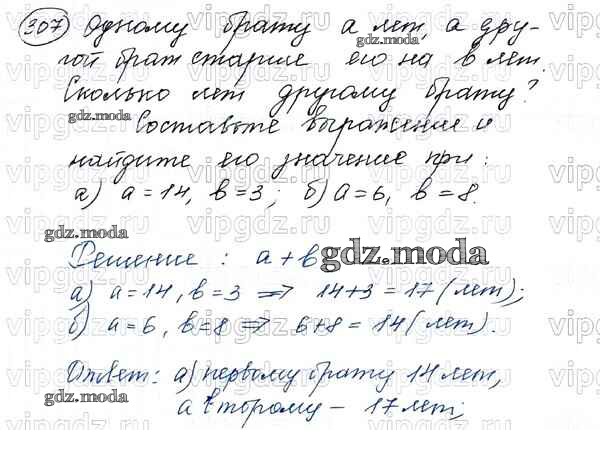 307 Одному брату a лет, а дру-
гой брат старше его на b лет.
Сколько лет другому брату?
Составьте выражение и
найдите его значение при:
а) a=14, b=3; б) a=6, b=8.
Решение: a+b
а) a=14, b=3 => 14+3=17 (лет);
б) a=6, b=8 => 6+8=14 (лет).
Ответ: а) первому брату 14 лет,
а второму - 17 лет;
gdz.moda
gdz.moda
gdz.moda
gdz.moda
gdz.moda
gdz.moda
vipgdz.ru